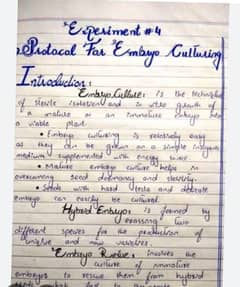 Experiment #4
Protocol For Embryo Culturing
Introduction:
Embryo Culture: is the technique
of sterile isolation and in vitro growth of
a mature or an immature embryo into
a viable plant.
• Embryo culturing is relatively easy
as they can be grown on a simple inorganic
medium supplemented with energy source.
• Mature embryo culture helps in
overcoming seed dormancy and sterility.
• Seeds with hard testa and
embryo can easily be cultured.
Hybrid Embryo: is formed by
crossing two
different species for the production of
unique and new varieties.
Embryo Rescue: involves the
culture of immature
embryos to rescue them from hybrid